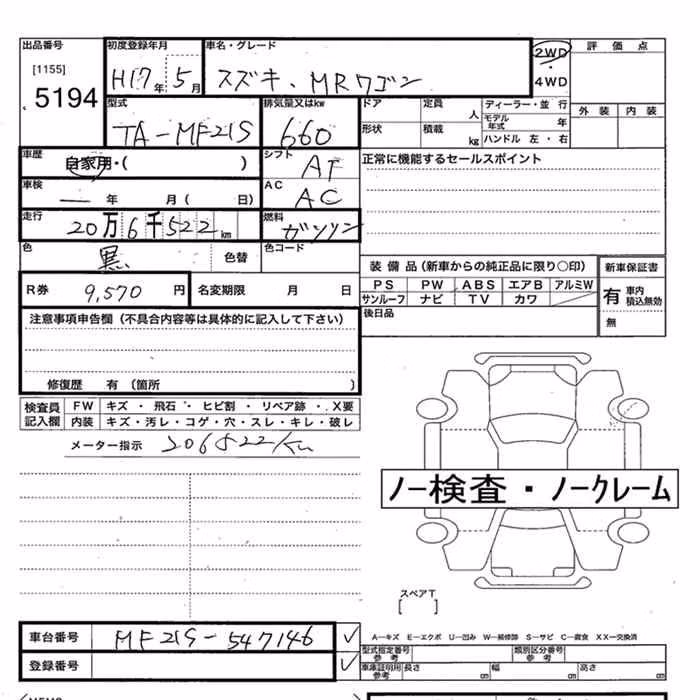 出品番号 初度登録年月 車名・グレード 2WD 評価点
[1155] H17年5月 スズキ、MRワゴン ・
5194 4WD
型式 排気量又はkw ドア 定員 人 ディーラー・並行 外装 内装
TA-MF21S 660 形状 積載 kg モデル年式 年
ハンドル 左・右
車歴 自家用・( ) シフト AT 正常に機能するセールスポイント
車検 ― 年 月( 日) AC AC
走行 20万6千522km 燃料 ガソリン
色 黒 色替 色コード
装備品(新車からの純正品に限り○印) 新車保証書
R券 9,570円 名変期限 月 日 PS PW ABS エアB アルミW 有 車内積込無効
サンルーフ ナビ TV カワ
注意事項申告欄(不具合内容等は具体的に記入して下さい) 後日品 無
修復歴 有(箇所 )
検査員記入欄 FW キズ・飛石・ヒビ割・リペア跡・X要
内装 キズ・汚レ・コゲ・穴・スレ・キレ・破レ
メーター指示 206522km
ノー検査・ノークレーム
スペアT
[ ]
車台番号 MF21S-547146 ✓ A―キズ E―エクボ U―凹み W―補修跡 S―サビ C―腐食 XX―交換済
型式指定番号 参考 類別区分番号 参考
登録番号 ✓ 車庫証明用参考 長さ cm 幅 cm 高さ cm